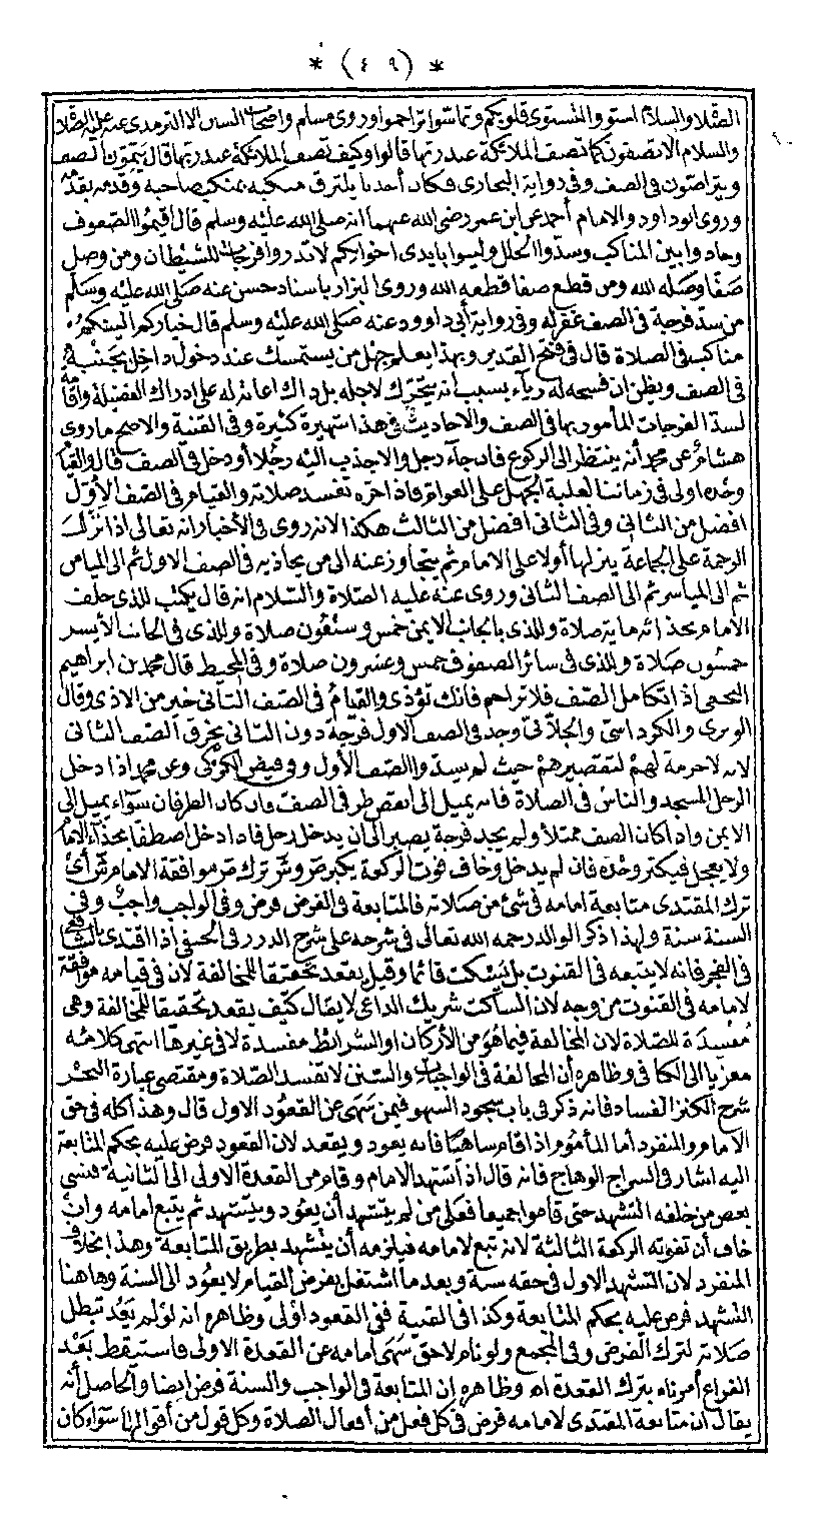 * (٤٩) *
الصلاة والسلام استووا تستوى قلوبكم وتماسوا تراحموا وروى مسلم واصحاب السنن الا الترمذى عنه عليه الصلاة
والسلام الا تصفون كما تصف الملائكة عند ربها قالوا وكيف تصف الملائكة عند ربها قال يتمون الصف
ويتراصون فى الصف وفى رواية البخارى فكان أحدنا يلزق منكبه بمنكب صاحبه وقدمه بقدمه
وروى ابو داود والامام أحمد عن ابن عمر رضى الله عنهما انه صلى الله عليه وسلم قال أقيموا الصفوف
وحاذوا بين المناكب وسدوا الخلل ولينوا بايدى اخوانكم لا تذروا فرجات للشيطان ومن وصل
صفا وصله الله ومن قطع صفا قطعه الله وروى البزار باسناد حسن عنه صلى الله عليه وسلم
من سد فرجة فى الصف غفر له وفى رواية أبى داوود عنه صلى الله عليه وسلم قال خياركم الينكم
مناكب فى الصلاة قال فى فتح القدير وبهذا يعلم جهل من يستمسك عند دخول داخل بجنبه
فى الصف ويظن ان فسحه له رياء بسبب انه يتحرك لاجله بل ذاك اعانة له على ادراك الفضيلة واقامة
لسد الفرجات المأمور بها فى الصف والاحاديث فى هذا شهيرة كثيرة وفى القنية والاصح ما روى
هشام عن محمد أنه ينتظر الى الركوع فان جاء رجل والا جذب اليه رجلا أو دخل فى الصف قال والقيام
وحده اولى فى زماننا لغلبة الجهل على العوام فاذا جره تفسد صلاته والقيام فى الصف الاول
افضل من الثانى وفى الثانى افضل من الثالث هكذا لانه روى فى الأخبار انه تعالى اذا نزلت
الرحمة على الجماعة ينزلها أولا على الامام ثم يتجاوز عنه الى من يحاذيه فى الصف الاول ثم الى الميامن
ثم الى المياسر ثم الى الصف الثانى وروى عنه عليه الصلاة والسلام انه قال يكتب للذى خلف
الامام بحذائه ماية صلاة وللذى بالجانب الايمن خمس وسبعون صلاة وللذى فى الجانب الأيسر
خمسون صلاة وللذى فى سائر الصفوف خمس وعشرون صلاة وفى المحيط قال محمد بن ابراهيم
اذا تكامل الصف فلا تزاحم فانك تؤذى والقيام فى الصف الثانى خير من الاذى وقال
الوبرى والكرداسى والجلابى وجد فى الصف الاول فرجة دون الثانى يخرق الصف الثانى
لانه لا حرمة لهم لتقصيرهم حيث لم يسدوا الصف الأول وفى فيض الكركى وعن محمد اذا دخل
الرجل المسجد والناس فى الصلاة فانه يميل الى انقص طرفى الصف فان كان الطرفان سواء يميل الى
الايمن واذا كان الصف ممتلأ ولم يجد فرجة يصبر الى ان يدخل رجل فاذا دخل اصطفا بحذاء الامام
ولا يعجل فيكبر وحده فان لم يدخل وخاف فوت الركعة يكبر ص وش ترك ص موافقة الامام ش أى
ترك المقتدى متابعة امامه فى شئ من صلاته فالمتابعة فى الفرض فرض وفى الواجب واجب وفى
السنة سنة ولهذا ذكر الوالد رحمه الله تعالى فى شرحه على شرح الدرر فى الحنفى اذا اقتدى بالشافعى
فى الفجر فانه لا يتبعه فى القنوت بل يسكت قائما وقيل يقعد تحقيقا للمخالفة لان فى قيامه موافقة
لامامه فى القنوت من وجه لان الساكت شريك الداعى لا يقال كيف يقعد تحقيقا للمخالفة وهى
مفسدة للصلاة لان المخالفة فيما هو من الأركان او الشرائط مفسدة لا فى غيرها انتهى كلامه
معزيا الى الكافى وظاهره أن المخالفة فى الواجبات والسنن لا تفسد الصلاة ومقتضى عبارة البحر
شرح الكنز الفساد فانه ذكر فى باب سجود السهو فيمن سهى عن القعود الاول قال وهذا كله فى حق
الامام والمنفرد أما المأموم اذا قام ساهيا فانه يعود ويقعد لان القعود فرض عليه بحكم المتابعة
اليه اشار فى السراج الوهاج فانه قال اذا تشهد الامام وقام من القعدة الاولى الى الثانية فنسى
بعض من خلفه التشهد حتى قاموا جميعا فعلى من لم يتشهد أن يعود ويتشهد ثم يتبع امامه وان
خاف أن تفوته الركعة الثالثة لانه تبع لامامه فيلزمه أن يتشهد بطريق المتابعة وهذا بخلاف
المنفرد لان التشهد الاول فى حقه سنة وبعدما اشتغل بفرض القيام لا يعود الى السنة وهاهنا
التشهد فرض عليه بحكم المتابعة وكذا فى القنية ففى القعود اولى وظاهره انه لو لم يعد تبطل
صلاته لترك الفرض وفى المجمع ولو نام لاحق سهى امامه عن القعدة الاولى فاستيقظ بعد
الفراغ أمرناه بترك القعدة اه وظاهره ان المتابعة فى الواجب والسنة فرض ايضا والحاصل أنه
يقال ان متابعة المقتدى لامامه فرض فى كل فعل من أفعال الصلاة وكل قول من أقوالها سواء كان